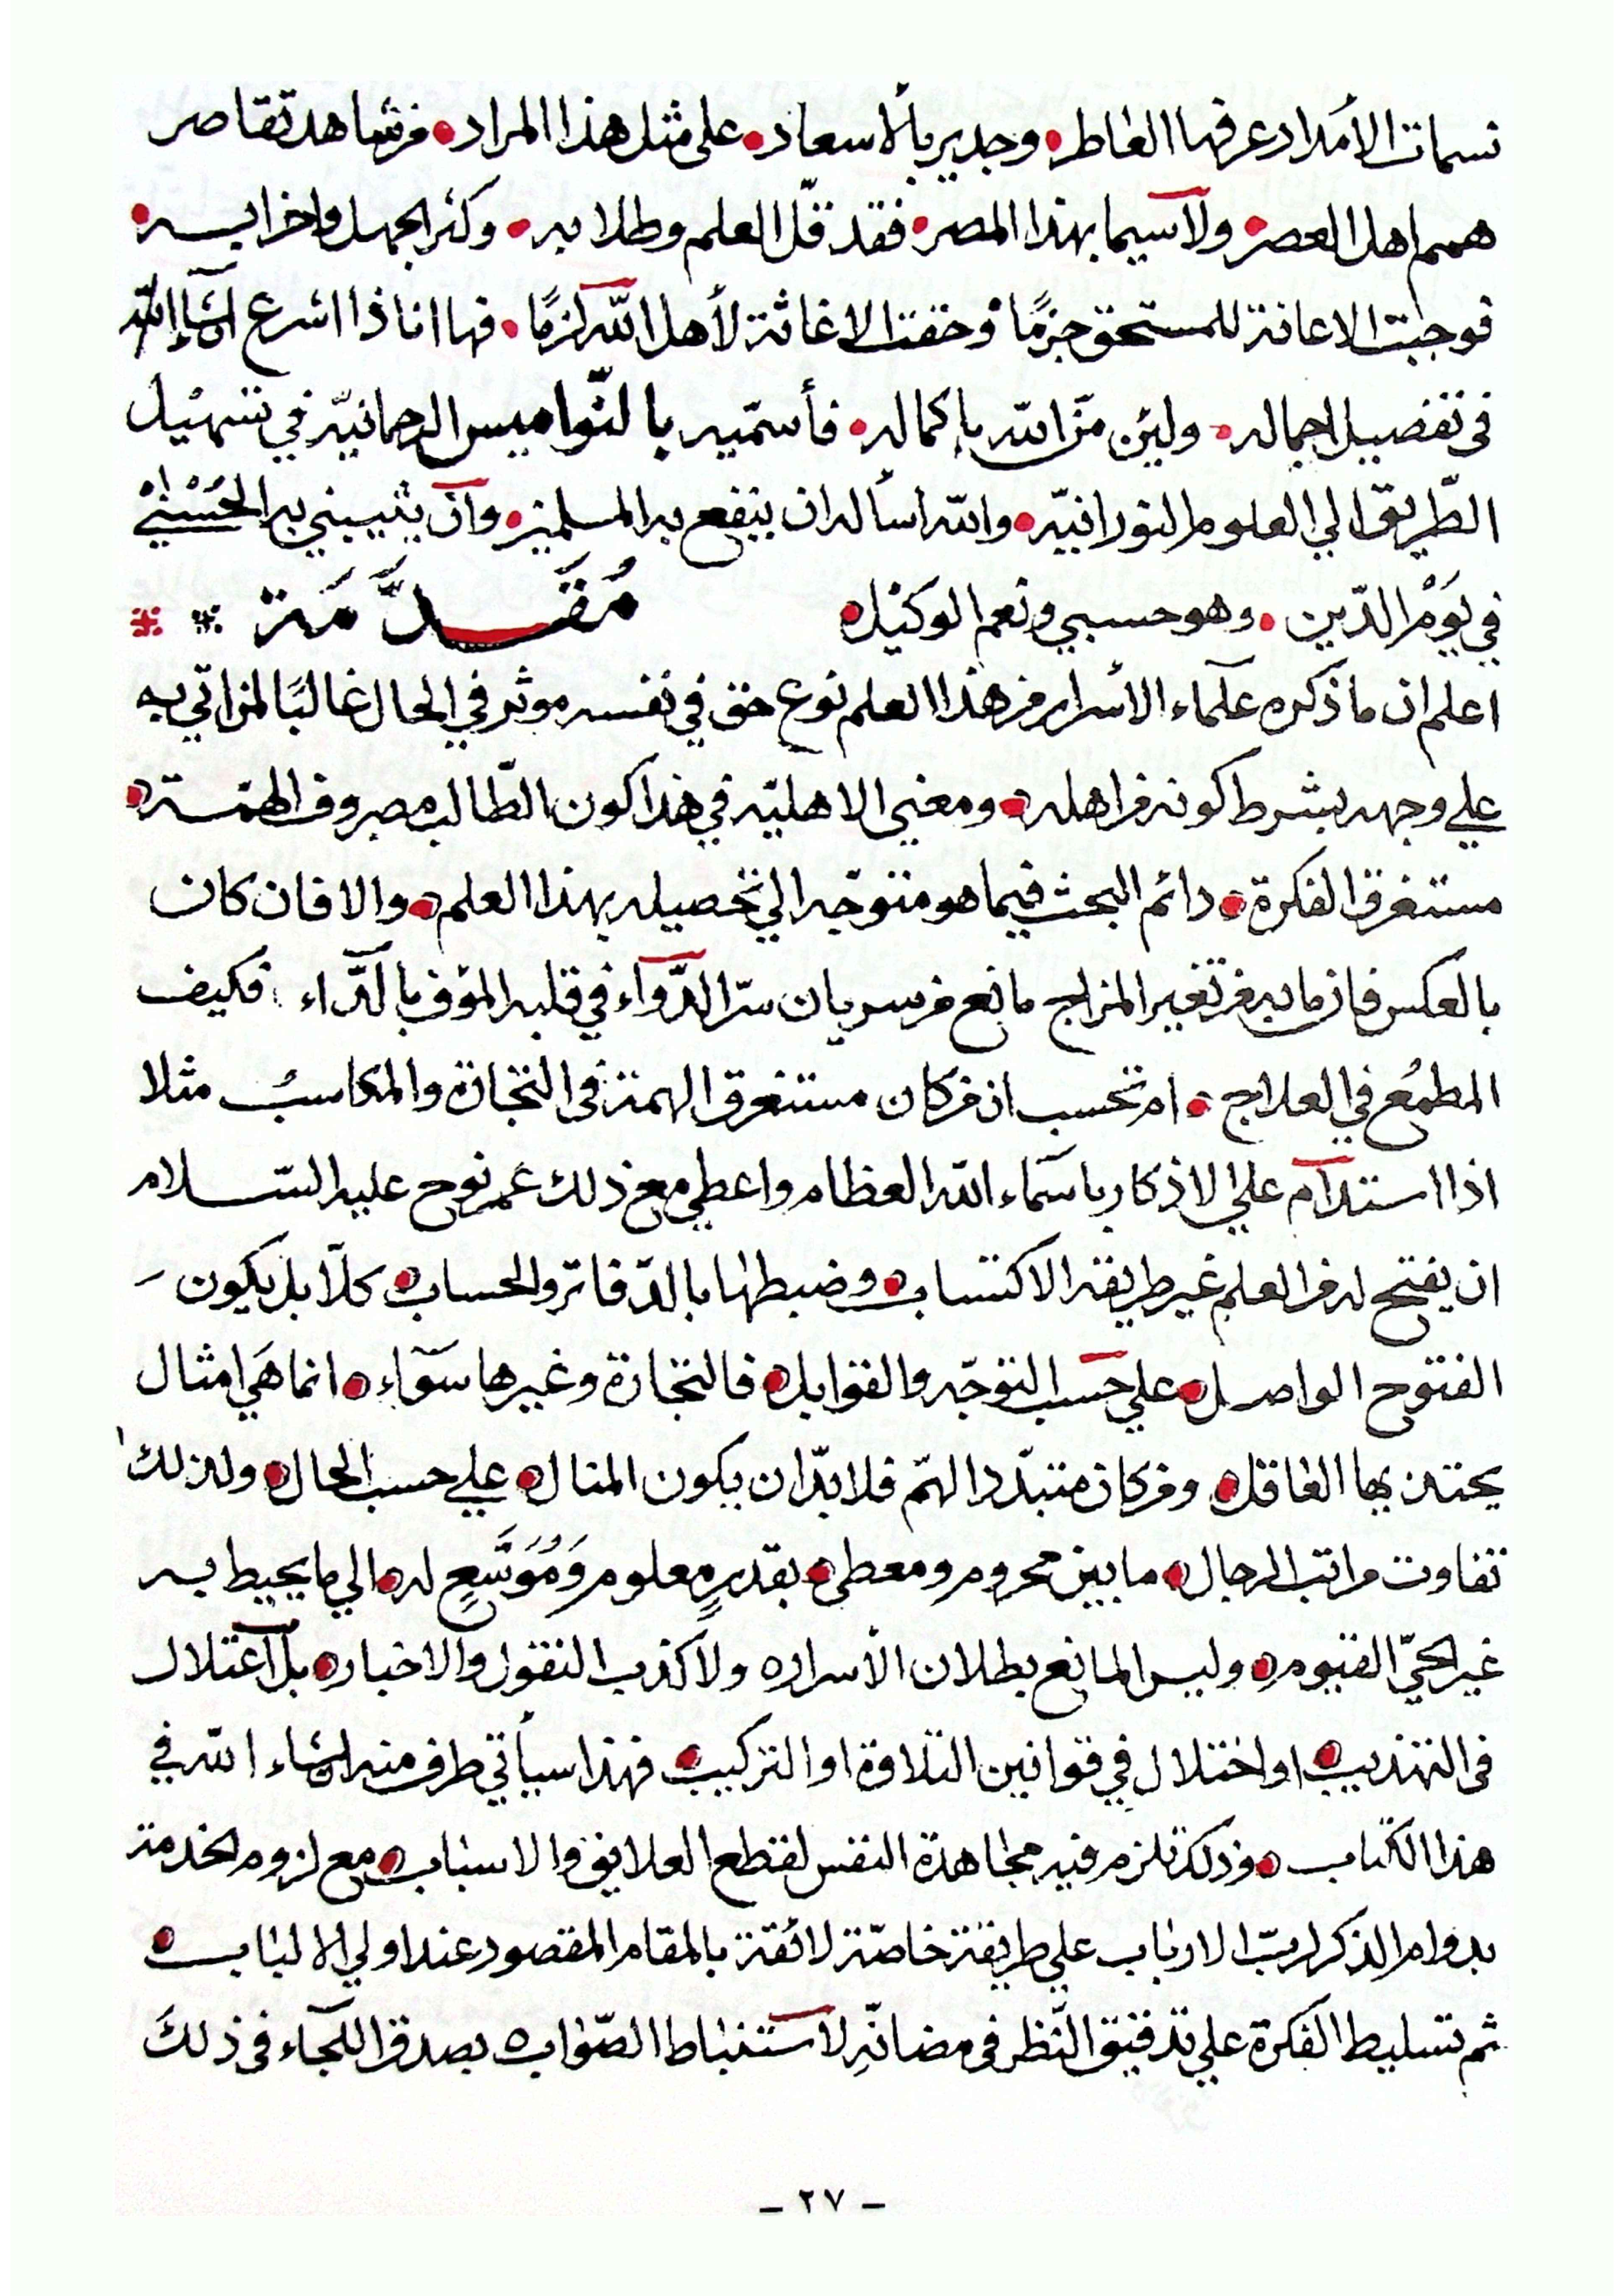 نسمات الأمداد عرفها العاطر • وجدير بالأسعاد • على مثل هذا المراد • من شاهد تقاصر
همم اهل العصر • ولا سيما بهذا المصر • فقد قلّ العلم وطلابه • وكثر الجهل واحزابه •
فوجبت الاعانة للمستحق جزمًا • وحقت الاغاثة لأهل الله لزمًا • فها انا ذا اشرع ان شاء الله
في تفصيل اجماله • ولئن منّ الله باكماله • فأسمّيه بالنّواميس الرحمانيّه في تسهيل
الطّريق الي العلوم النورانيّه • والله أسأله ان ينفع به المسلمين • وان يثيبني به الحُسْنيْ
في يَوْم الدّين • وهو حسبي ونعم الوكيْل • مُقَدَّمَة
اعلم ان ما ذكره علماء الأسرار من هذا العلم نوع حق في نفسه موثر في الحال غالبًا لمن اتي به
علي وجهه بشرط كونه من اهله • ومعني الاهليّه في هذا كون الطّالب مصروف الهمّة •
مستغرق الفكرة • دائم البحث فيما هو متوجّه الي تحصيله بهذا العلم • والا فان كان
بالعكس فان ما به من تغير المزاج مانع من سريان سرّ الدّواء في قلبه المؤف بالدّاء • فكيف
المطمُع في العلاج • ام تحسب ان من كان مستغرق الهمة في التجارة والمكاسب مثلا
اذا استدام علي الاذكار باسماء الله العظام واعطي مع ذلك عمر نوح عليه السّلام
ان يفتح له من العلم غير طريقه الاكتساب • وضبطها بالدّفاتر والحساب • كلّا بل يكون
الفتوح الواصل • علي حسب التوجّه والقوابل • فالتجارة وغيرها سواء • انما هَي امثال
يحتذي بها الغافل • ومن كان متبدّد الهمّ فلا بدّ ان يكون المنال • علي حسب الحال • ولذلك
تفاوت مراتب الرجال • ما بين محروم ومعطى • بقدرٍ معلوم وَمُوَسَّعٍ له • الي ما يحيط به
غير الحيّ القيوم • وليس المانع بطلان الأسرار • ولا كذب النقول والاخبار • بل اعتلال
في التهذيب • او اختلال في قوانين التلاوة او التركيب • فهذا سيأتي طرف منه ان شاء الله في
هذا الكتاب • وذلك تلزم فيه مجاهدة النفس لقطع العلايق والاسباب • مع لزوم الخدمة
بدوام الذكر لربّ الارباب علي طريقة خاصّة لائقة بالمقام المقصود عند اولي الالباب •
ثم تسليط الفكرة علي تدقيق النّظر في مضانّهِ لاستنباط الصّواب • بصدق اللجاء في ذلكَ
- ٢٧ -